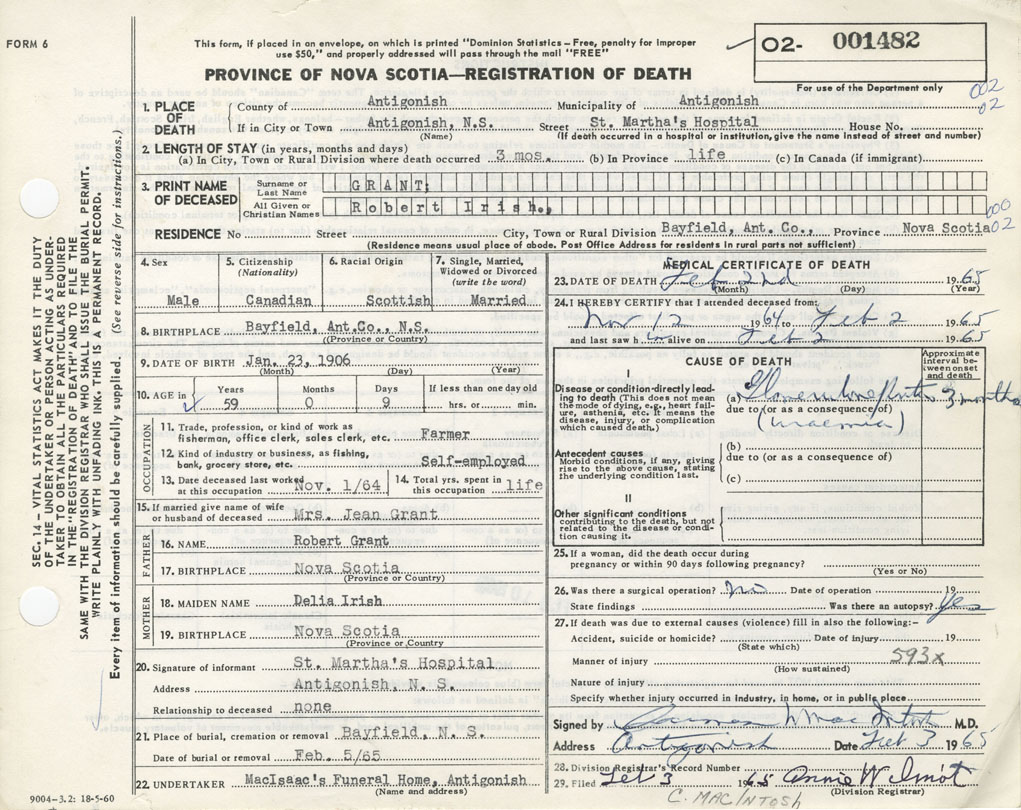 FORM 6
This form, if placed in an envelope, on which is printed "Dominion Statistics – Free, penalty for improper
use $50," and properly addressed will pass through the mail "FREE"
O2- 001482
PROVINCE OF NOVA SCOTIA—REGISTRATION OF DEATH
For use of the Department only
002
02
1. PLACE OF DEATH County of Antigonish Municipality of Antigonish
If in City or Town Antigonish, N.S. Street St. Martha's Hospital House No.
(Name) (If death occurred in a hospital or institution, give the name instead of street and number)
2. LENGTH OF STAY (in years, months and days)
(a) In City, Town or Rural Division where death occurred 3 mos. (b) In Province life (c) In Canada (if immigrant)
3. PRINT NAME OF DECEASED Surname or Last Name GRANT:
All Given or Christian Names Robert Irish.,
000
02
RESIDENCE No Street City, Town or Rural Division Bayfield, Ant. Co., Province Nova Scotia
(Residence means usual place of abode. Post Office Address for residents in rural parts not sufficient)
SEC. 14 – VITAL STATISTICS ACT MAKES IT THE DUTY
OF THE UNDERTAKER OR PERSON ACTING AS UNDER-
TAKER TO OBTAIN ALL THE PARTICULARS REQUIRED
IN THE "REGISTRATION OF DEATH" AND TO FILE THE
SAME WITH THE DIVISION REGISTRAR WHO SHALL ISSUE THE BURIAL PERMIT.
WRITE PLAINLY WITH UNFADING INK. THIS IS A PERMANENT RECORD.
Every item of information should be carefully supplied. (See reverse side for instructions.)
4. Sex
Male
5. Citizenship
(Nationality)
Canadian
6. Racial Origin
Scottish
7. Single, Married,
Widowed or Divorced
(write the word)
Married
8. BIRTHPLACE Bayfield, Ant.Co., N.S.
(Province or Country)
9. DATE OF BIRTH Jan. 23, 1906
(Month) (Day) (Year)
10. AGE in Years 59 Months 0 Days 9 If less than one day old
hrs. or min.
OCCUPATION
11. Trade, profession, or kind of work as
fisherman, office clerk, sales clerk, etc. Farmer
12. Kind of industry or business, as fishing,
bank, grocery store, etc. Self-employed
13. Date deceased last worked
at this occupation Nov. 1/64
14. Total yrs. spent in
this occupation life
15. If married give name of wife
or husband of deceased Mrs. Jean Grant
FATHER
16. NAME Robert Grant
17. BIRTHPLACE Nova Scotia
(Province or Country)
MOTHER
18. MAIDEN NAME Delia Irish
19. BIRTHPLACE Nova Scotia
(Province or Country
20. Signature of informant St. Martha's Hospital
Address Antigonish, N. S.
Relationship to deceased none
21. Place of burial, cremation or removal Bayfield, N. S.
Date of burial or removal Feb. 5/65
22. UNDERTAKER MacIsaac's Funeral Home, Antigonish
(Name and address)
9004-3.2: 18-5-60
MEDICAL CERTIFICATE OF DEATH
23. DATE OF DEATH Feb 2nd 1965
(Month) (Day) (Year)
24. I HEREBY CERTIFY that I attended deceased from:
Nov 12 1964 to Feb 2 1965
and last saw h im alive on Feb 2 1965
CAUSE OF DEATH
Approximate
interval be-
tween onset
and death
I
Disease or condition directly lead-
ing to death (This does not mean
the mode of dying, e.g., heart fail-
ure, asthenia, etc. It means the
disease, injury, or complication
which caused death.)
(a) 3 months
due to (or as a consequence of)
(uraemia)
Antecedent causes
Morbid conditions, if any, giving
rise to the above cause, stating
the underlying condition last.
(b)
due to (or as a consequence of)
(c)
II
Other significant conditions
contributing to the death, but not
related to the disease or condi-
tion causing it.
25. If a woman, did the death occur during
pregnancy or within 90 days following pregnancy?
(Yes or No)
26. Was there a surgical operation? no Date of operation 19
State findings Was there an autopsy? Yes
27. If death was due to external causes (violence) fill in also the following:–
Accident, suicide or homicide? Date of injury 19
(State which)
Manner of injury 593x
(How sustained)
Nature of injury
Specify whether injury occurred in industry, in home, or in public place
Signed by Mac Intosh M.D.
Address Antigonish Date Feb 3 1965
28. Division Registrar's Record Number
29. Filed Feb 3 1965 Annie Wilmot
(Division Registrar)
C. MACINTOSH